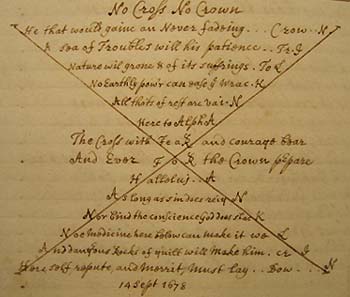 No Cross No Crown
He that would gaine an Never fadeing... Crow. N
A Sea of Troubles will his patience.. Tr. I
Nature will grone & of its suffrings. To L
No Earthly pow'r can ease yͤ Wrac. K
All thots of rest are vai. N
Here to Alph A
The Cross with Fea R and courage bear
And Ever F o R the Crown ppare
Halleluj.. A
As long as sin does reig N
Nor blind the conscience God dus
Noe medicine here below can make it wo L
And danfous Rocks of will make him. cr I
Here self repute, and Merrit, Must lay.. Dow... N
14 Sept 1678